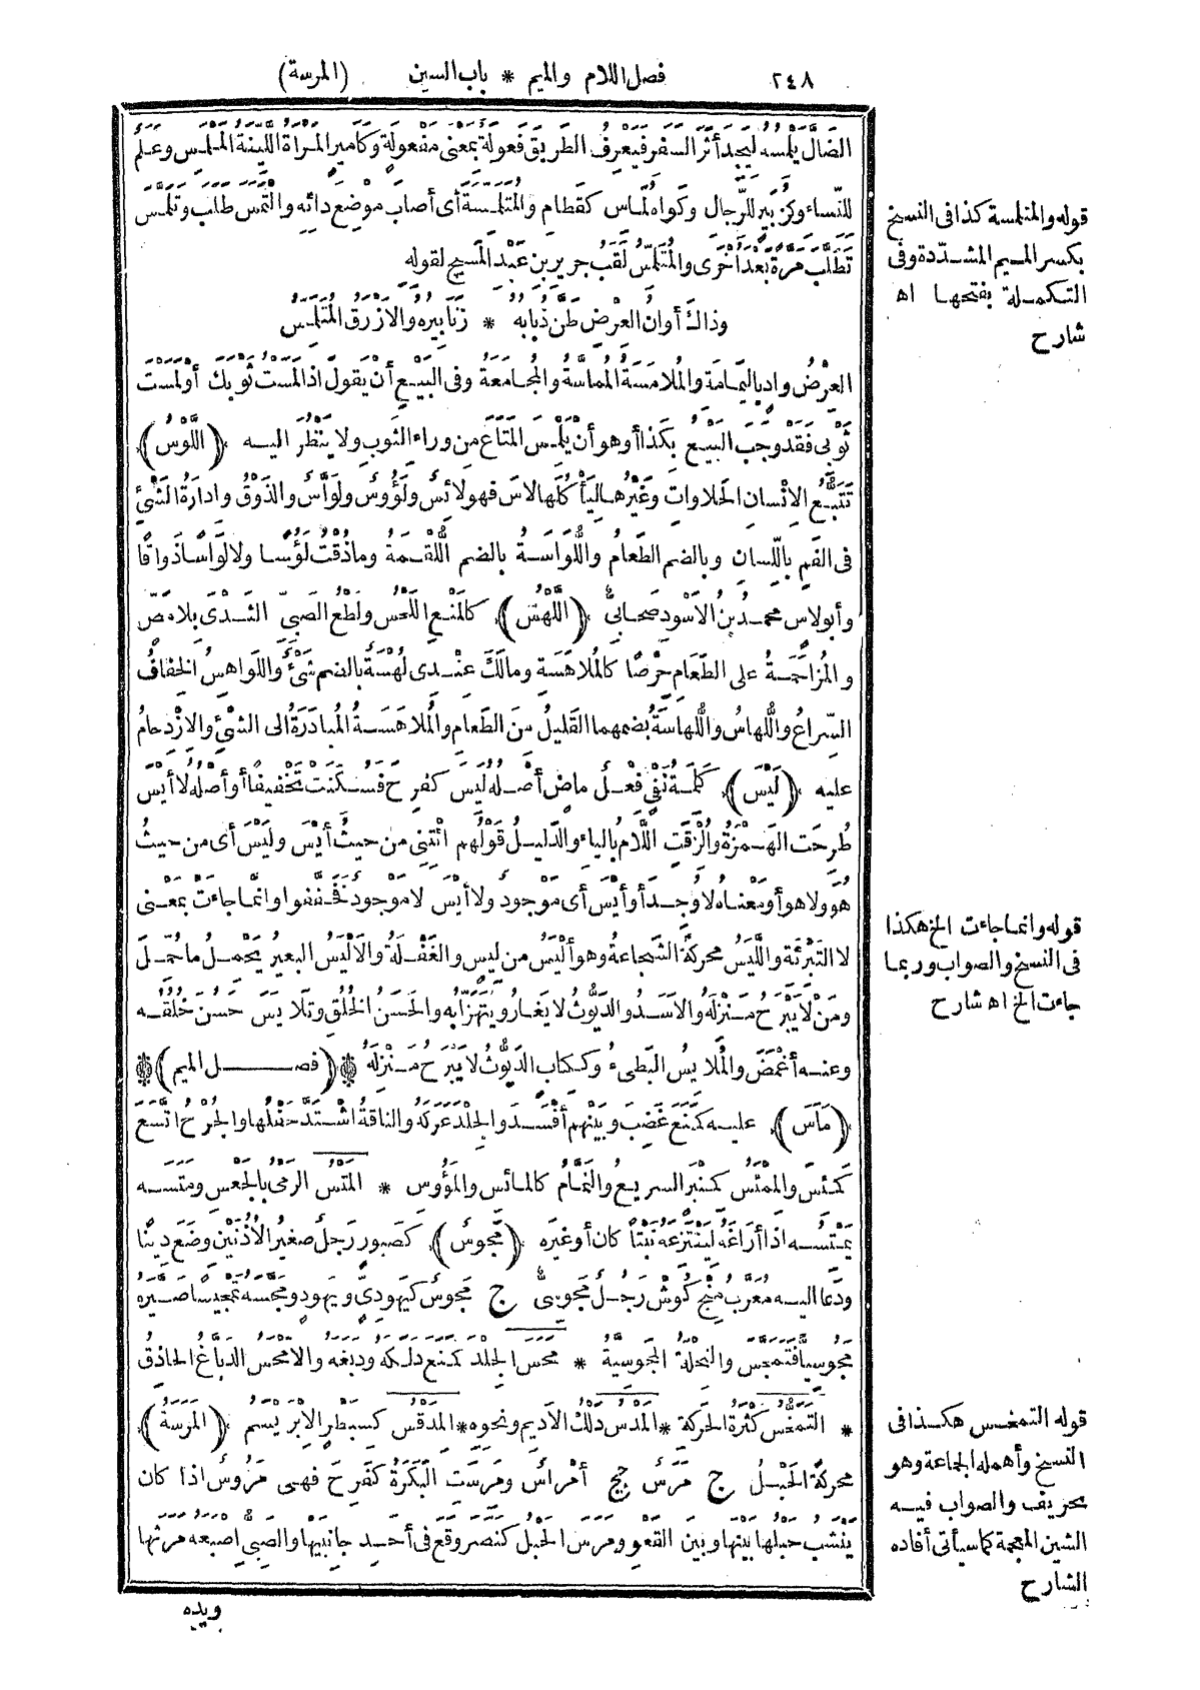 ٢٤٨ فصل اللام والميم * باب السين (المرسة)
الضَّالَّ يَلْمُسُه ليَجِدَ أثَرَ السَّفر فيَعرِفُ الطَّريقَ فَعولة بمعنى مَفْعولَة وكأمير المرأة اللَّيِّنَةُ المَلْمَس وعَلَمٌ
للنِّساء وكزُبَيْر للرِّجال وكَواه لَمَاس كقَطام والمُتَلَمِّسَة أى أصابَ موْضِعَ دائه والْتَمَسَ طَلَبَ وتَلَمَّسَ
تَطَلَّبَ مَرَّةً بَعْدَ أُخْرَى والمُتَلَمِّسُ لَقَبُ جرير بن عَبْدِ المَسِيح لقوله
وذاكَ أوانُ العِرْضِ طَنَّ ذُبابُه * زَنابيرُه والأزْرَقُ المُتَلَمِّسُ
العِرْضُ وادٍ باليَمامَة والمُلامَسَةُ المُماسَّةُ والمُجامَعَة وفى البَيْع أن يَقول اذا لمَسْت ثَوْبَك أو لمَسْت
ثَوْبى فَقَد وَجَبَ البَيْعُ بكذا أو هو أن يَلْمِسَ المَتاعَ من وراء الثوب ولا يَنْظُرَ اليه (اللَّوْسُ)
تَتَبُّعُ الإنْسان الحَلاوات وغَيْرها ليَأْكُلَها لاسَ فهو لائِسٌ ولَؤُوسٌ ولَوَّاسٌ والذَّوْقُ وادارَةُ الشَّئِ
فى الفَمِ باللِّسانِ وبالضم الطَّعامُ واللُّوَاسَةُ بالضم اللُّقْمَةُ وماذُقْتُ لَؤُسًا ولا لَوَاسًا ذَواقًا
وأبو لاس محمدُ بنُ الأسْودِ صَحابىٌّ (اللَّهْسُ) كالمَنْعِ اللَّحْسُ ولَطْعُ الصَّبىّ الثَّدْىَ بلا مَصٍّ
والمُزاحَمَةُ على الطَّعام حِرْصًا كالمُلاهَسَةِ ومالَكَ عنْدى لُهْسَةٌ بالضم شئٌ واللَّواهسُ الخِفافُ
السِّراعُ واللُّهاسُ واللُّهاسَةُ بضمهما القَليلُ منَ الطَّعام والمُلاهَسَةُ المُبادَرَةُ الى الشئِ والازْدِحامُ
عليه (لَيْسَ) كَلمَةُ نَفْى فِعْلٌ ماضٍ أصْلُه لَيِسَ كفَرِحَ فَسُكِّنَتْ تَخْفيفًا أو أصْلُه لا أيْسَ
طُرِحَت الهَمْزَةُ وأُلْزِقَتِ اللَّامُ بالياء والدَّليلُ قَوْلُهم ائْتِنى من حيثُ أيْسَ ولَيْسَ أى من حيثُ
هُوَ ولا هو أو مَعْناه لا وُجِدَ أو أيْسَ أى مَوْجود ولا أيْسَ لا مَوْجود نَخَفَّفوا وانَّما جاءَتْ بمَعْنى
لا التَّبْرِئَةِ واللَّيَسُ محركةً الشَّجاعةُ وهو أليَسُ من ليس والغَفْلَةُ والألْيَسُ البعيرُ يَحْمِلُ ما حُمِّلَ
ومَنْ لا يَبْرَحُ مَنْزِلَه والأسَدُ والدَّيُّوثُ لا يَغارُ ويُتَهَزَّأُ به والحَسَنُ الخُلُقِ وتَلايَسَ حَسُنَ خُلُقُه
وعنه أغْمَضَ والمُلايِسُ البَطِىءُ وككتاب الدَّيُّوثُ لا يَبْرَحُ مَنْزِلَهُ (فصـــل الميم)
(مَأَسَ) عليه كَمَنَعَ غَضِبَ وبَيْنَهم أفْسَدَ والجِلْدَ عَرَكَهُ والناقةُ اشْتَدَّ حَفْلُها والجُرْحُ اتَّسَعَ
كَمَئِسَ والمِمْئَسُ كمنْبَر السريعُ والنَّمَّامُ كالمائِس والمَؤُوسِ * المَتْسُ الرمى بالجَعْسِ ومتَسَه
يَمْتِسُه اذا أراغَهُ ليَنْتَزِعَه نَبْتًا كان أو غيْرَه (مَجُوسٌ) كصَبورٍ رَجلٌ صغيرُ الأُذُنَيْنِ وضَعَ دِينًا
ودَعا اليه مُعَرَّبُ منْج كُوشْ رَجُلٌ مَجُوسىٌّ ج مَجوسٌ كيَهودِىّ ويَهودٍ ومَجَّسَه تَمْجيسًا صَيَّرَه
مَجُوسِيًّا فتَمَجَّسَ والنِّحلةُ المَجوسيَّةُ * مَحَسَ الجِلْدَ كمَنعَ دلكه ودبغه والأمحسُ الدباغُ الحاذقُ
* التَّمَخُّسُ كثرَةُ الحَرَكة * المَدْسُ دَلْكُ الأديم ونحوِه * المَدَقْسُ كسِبَطْرٍ الإبْرَيْسَم (المَرَسَةُ)
محركةً الحَبْلُ ج مَرَسٌ جج أمْراسٌ ومَرِسَتِ البَكَرَةُ كفَرِحَ فهى مَرُوسٌ اذا كان
يَنْشَبُ حبلُها بَيْنَها وبَيْن القَعْوِ ومَرَسَ الحَبْلُ كنَصَرَ وَقَعَ فى أحَدِ جانِبَيْها والصَّبىُّ إصبعَه مَرَثَها
ويده
قوله والمتلمسة كذا فى النسخ
بكسر الميم المشددة وفى
التكملة بفتحها اه
شارح
قوله وانما جاءت الخ هكذا
فى النسخ والصواب وربما
جاءت الخ اه شارح
قوله التمخس هكذا فى
النسخ وأهمله الجماعة وهو
تحريف والصواب فيه
الشين المعجمة كما سيأتى أفاده
الشارح